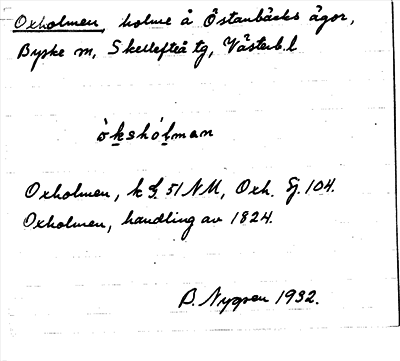 Oxholmen, holme å Östanbäcks ägor,
Byske m, Skellefteå tg, Västerb. l
ò̀kshól̥man
Oxholmen, k S. 51 NM, Oxh. Fj. 104.
Oxholmen, handling av 1824.
B. Nygren 1932.